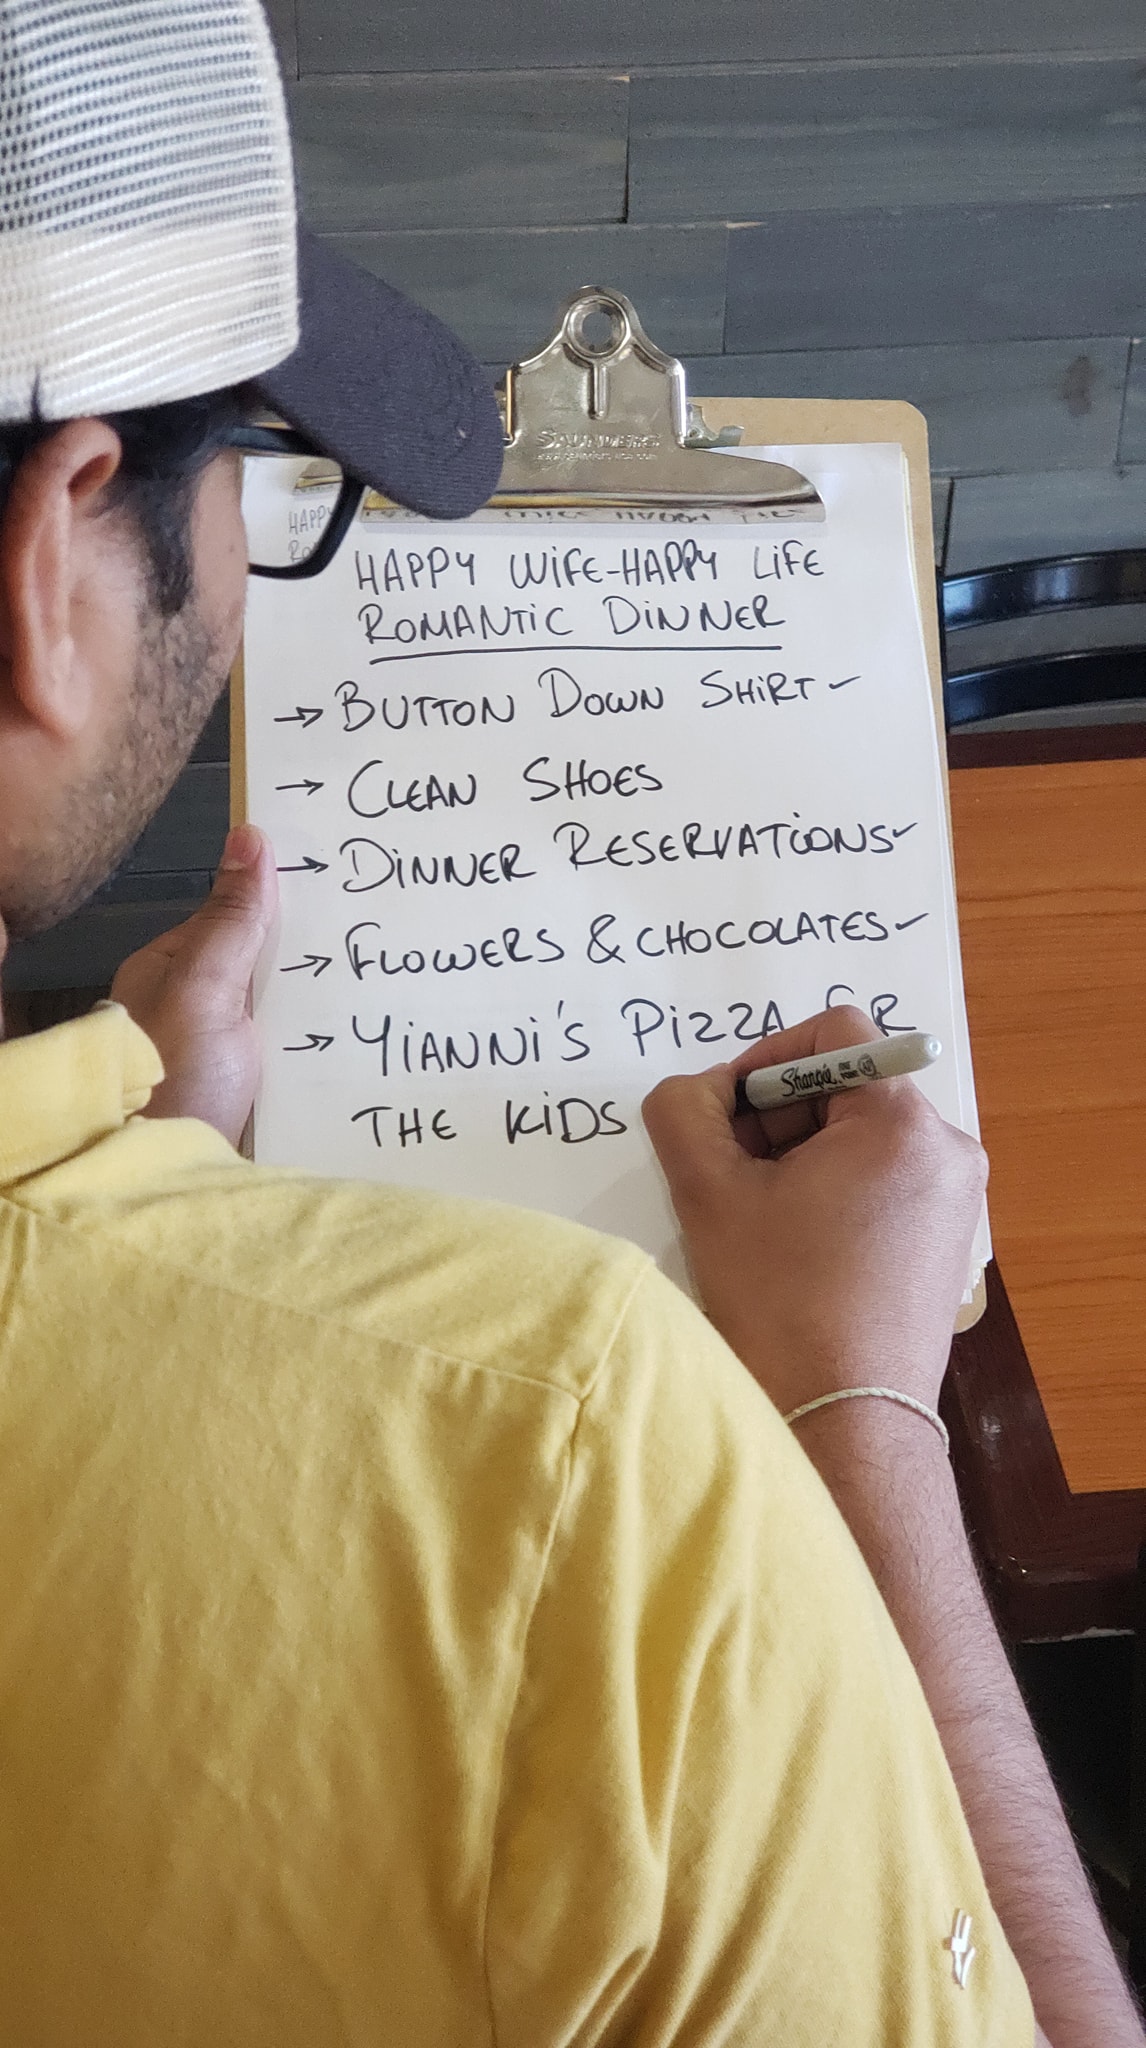 SAUNDERS
HAPPY
HAPPY WiFE-HAPPY LiFE
ROMANTiC DiNNER
→ BUTTON DOWN SHiRT ✓
→ CLEAN SHOES
→ DiNNER RESERVATiONS ✓
→ FLOWERS & CHOCOLATES ✓
→ YiANNi'S PiZZA FOR
THE KiDS
Sharpie